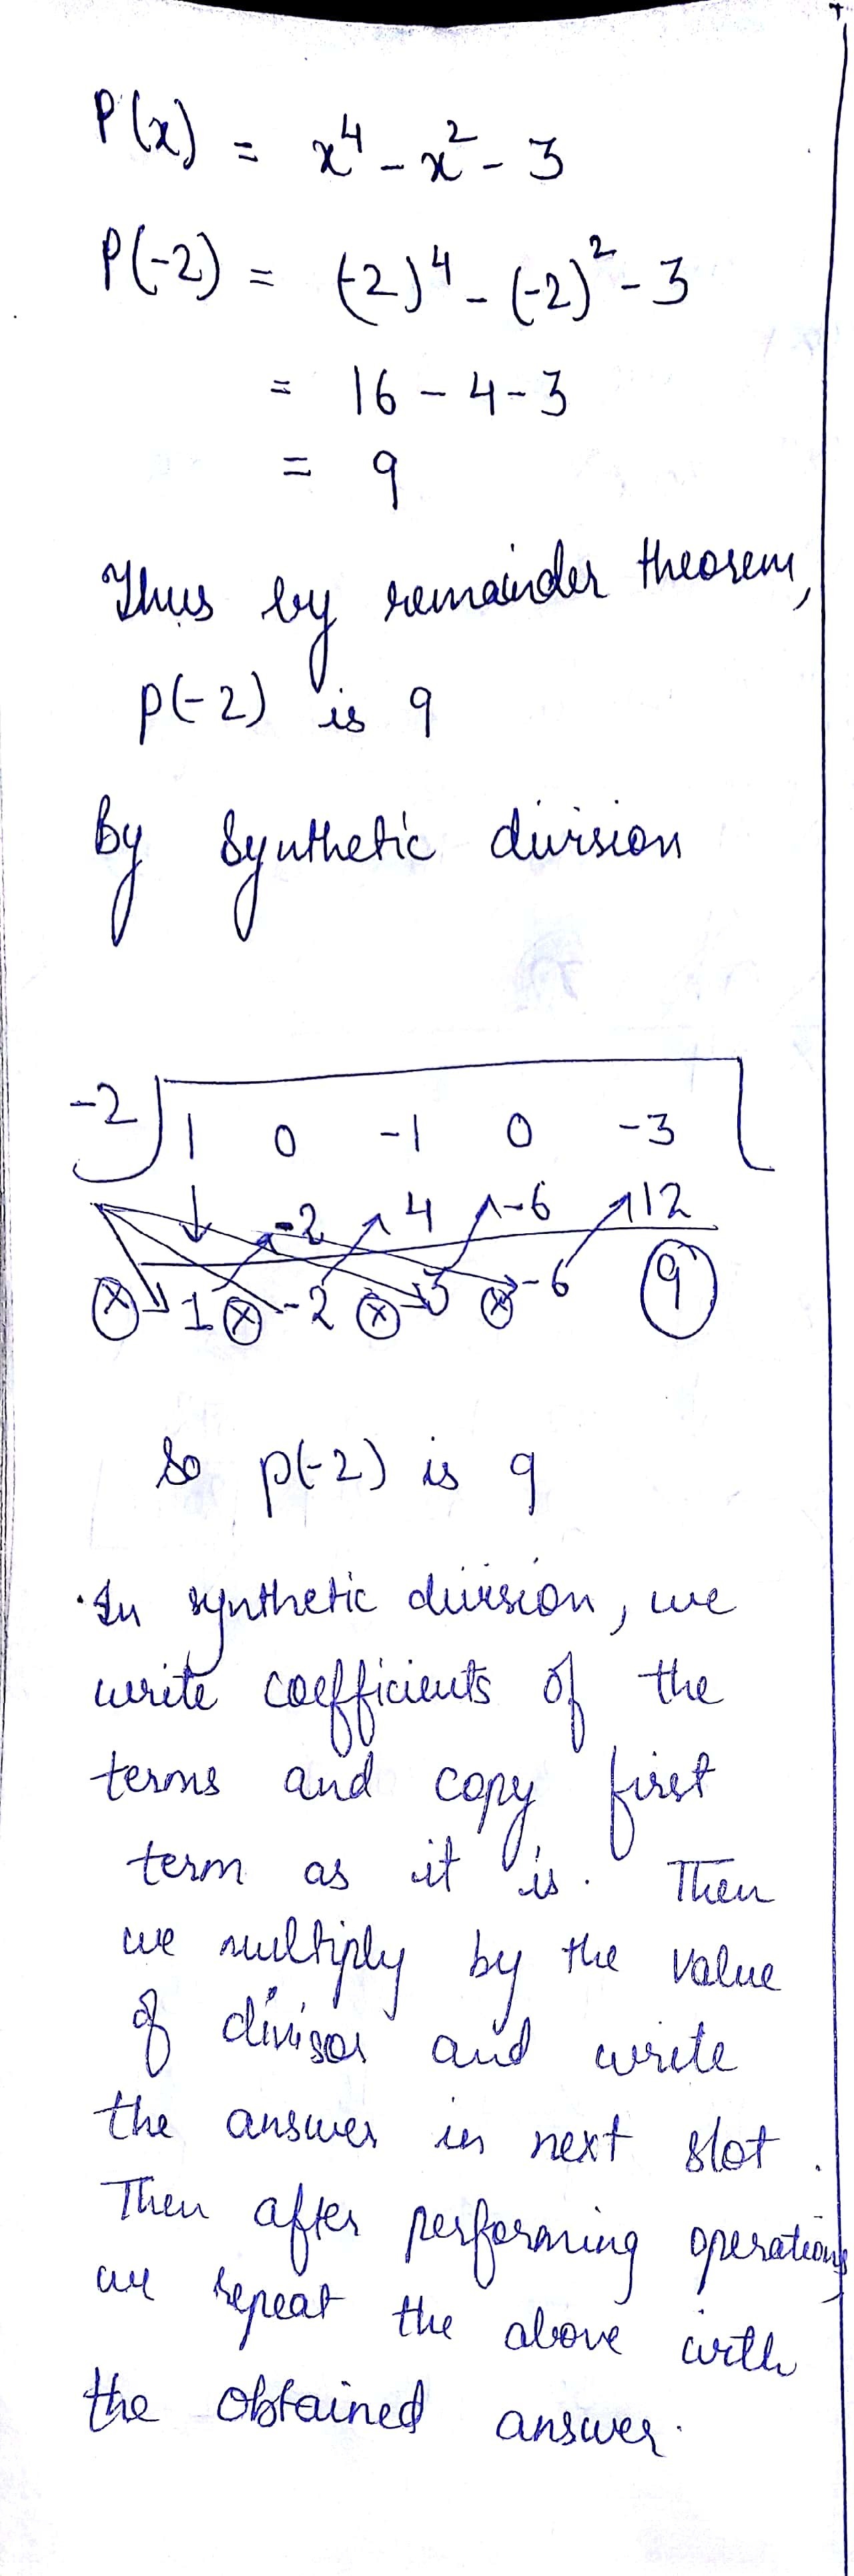 P(x) = x⁴ - x² - 3
P(-2) = (-2)⁴ - (-2)² - 3
= 16 - 4 - 3
= 9
Thus by remainder theorem,
p(-2) is 9
By Synthetic division
-2 1 0 -1 0 -3
-2 4 -6 12
ⓧ 1 ⓧ -2 ⓧ 3 ⓧ -6 9
So p(-2) is 9
· In synthetic division, we
write coefficients of the
terms and copy first
term as it is. Then
we multiply by the value
of divisor and write
the answer in next slot.
Then after performing operations
we repeat the above with
the obtained answer.